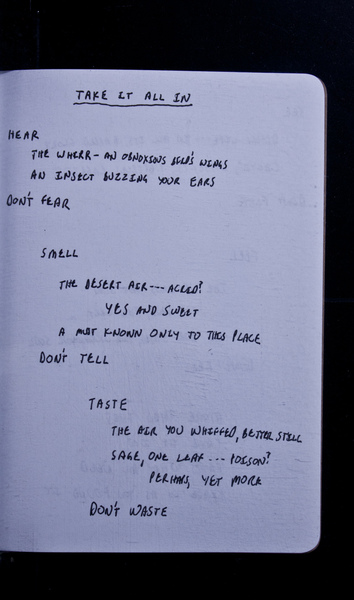 TAKE IT ALL IN
HEAR
THE WHIRR - AN OBNOXIOUS BIRD'S WINGS
AN INSECT BUZZING YOUR EARS
DON'T FEAR
SMELL
THE DESERT AIR --- ACRID?
YES AND SWEET
A MIST KNOWN ONLY TO THIS PLACE
DON'T TELL
TASTE
THE AIR YOU WHIFFED, BETTER STILL
SAGE, ONE LEAF --- POISON?
PERHAPS, YET MORE
DON'T WASTE